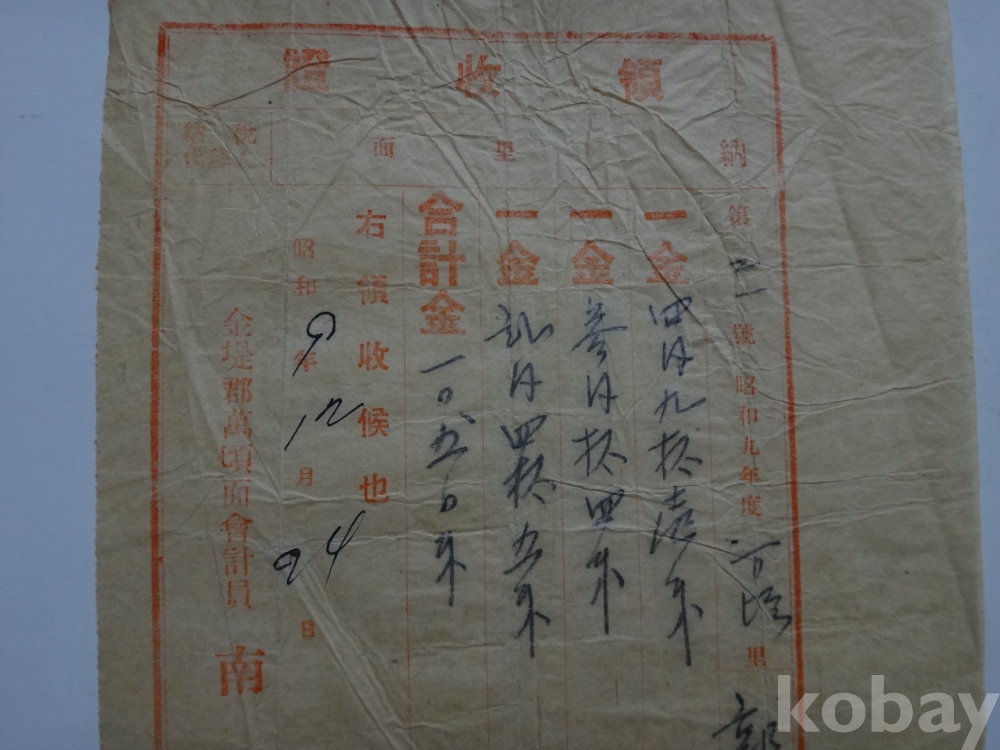 領收證
納 里 面
第 號 昭和九年度 里
一金 四円九拾壱戋
一金 参円拾四戋
一金 弐円四拾五戋
合計金 一〇円五〇戋
右領收候也
昭和9年12月24日
金堤郡萬頃面會計員 南
kobay